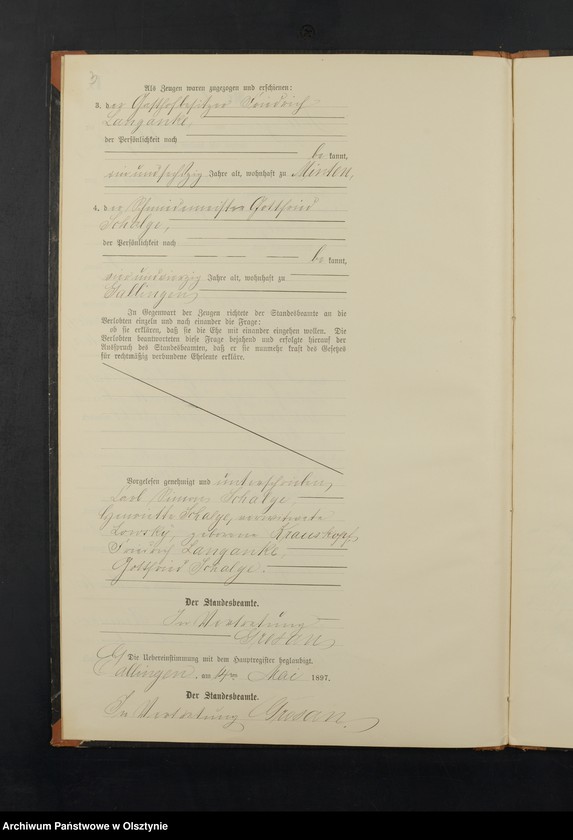 Als Zeugen waren zugezogen und erschienen:
3. der Gasthofbesitzer Friedrich
Langanke,
der Persönlichkeit nach
be kannt,
Jahre alt, wohnhaft zu Minten,
4. der Schmiedemeister Gottfried
Schalge,
der Persönlichkeit nach
be kannt,
Jahre alt, wohnhaft zu
Gallingen
In Gegenwart der Zeugen richtete der Standesbeamte an die
Verlobten einzeln und nach einander die Frage:
ob sie erklären, daß sie die Ehe mit einander eingehen wollen. Die
Verlobten beantworteten diese Frage bejahend und erfolgte hierauf der
Ausspruch des Standesbeamten, daß er sie nunmehr kraft des Gesetzes
für rechtmäßig verbundene Eheleute erkläre.
Vorgelesen, genehmigt und unterschrieben,
Carl Schalge
Henriette Schalge, verwittwete
geborene Klauskopf
Friedrich Langanke,
Gottfried Schalge.
Der Standesbeamte.
In Vertretung
Grusan
Die Uebereinstimmung mit dem Hauptregister beglaubigt.
Gallingen, am Mai 1897.
Der Standesbeamte.
In Vertretung Grusan.
Archiwum Państwowe w Olsztynie